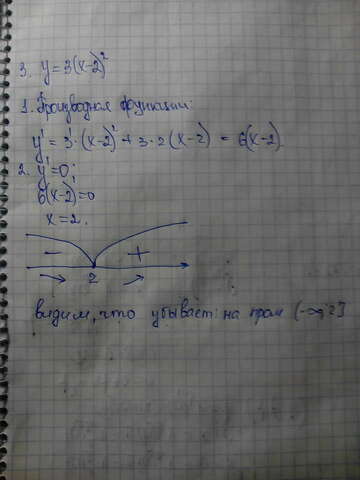 3. y=3(x-2)²
1. Производная функции:
y'=3'·(x-2)²+3·2(x-2) = 6(x-2)
2. y'=0;
6(x-2)=0
x=2.
- +
2
видим, что убывает на пром (-∞;2]